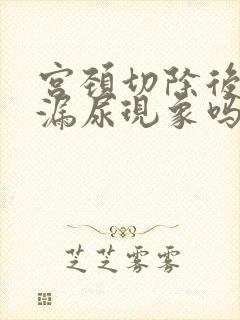 宫颈切除後
漏尿现象吗
芝芝雾雾